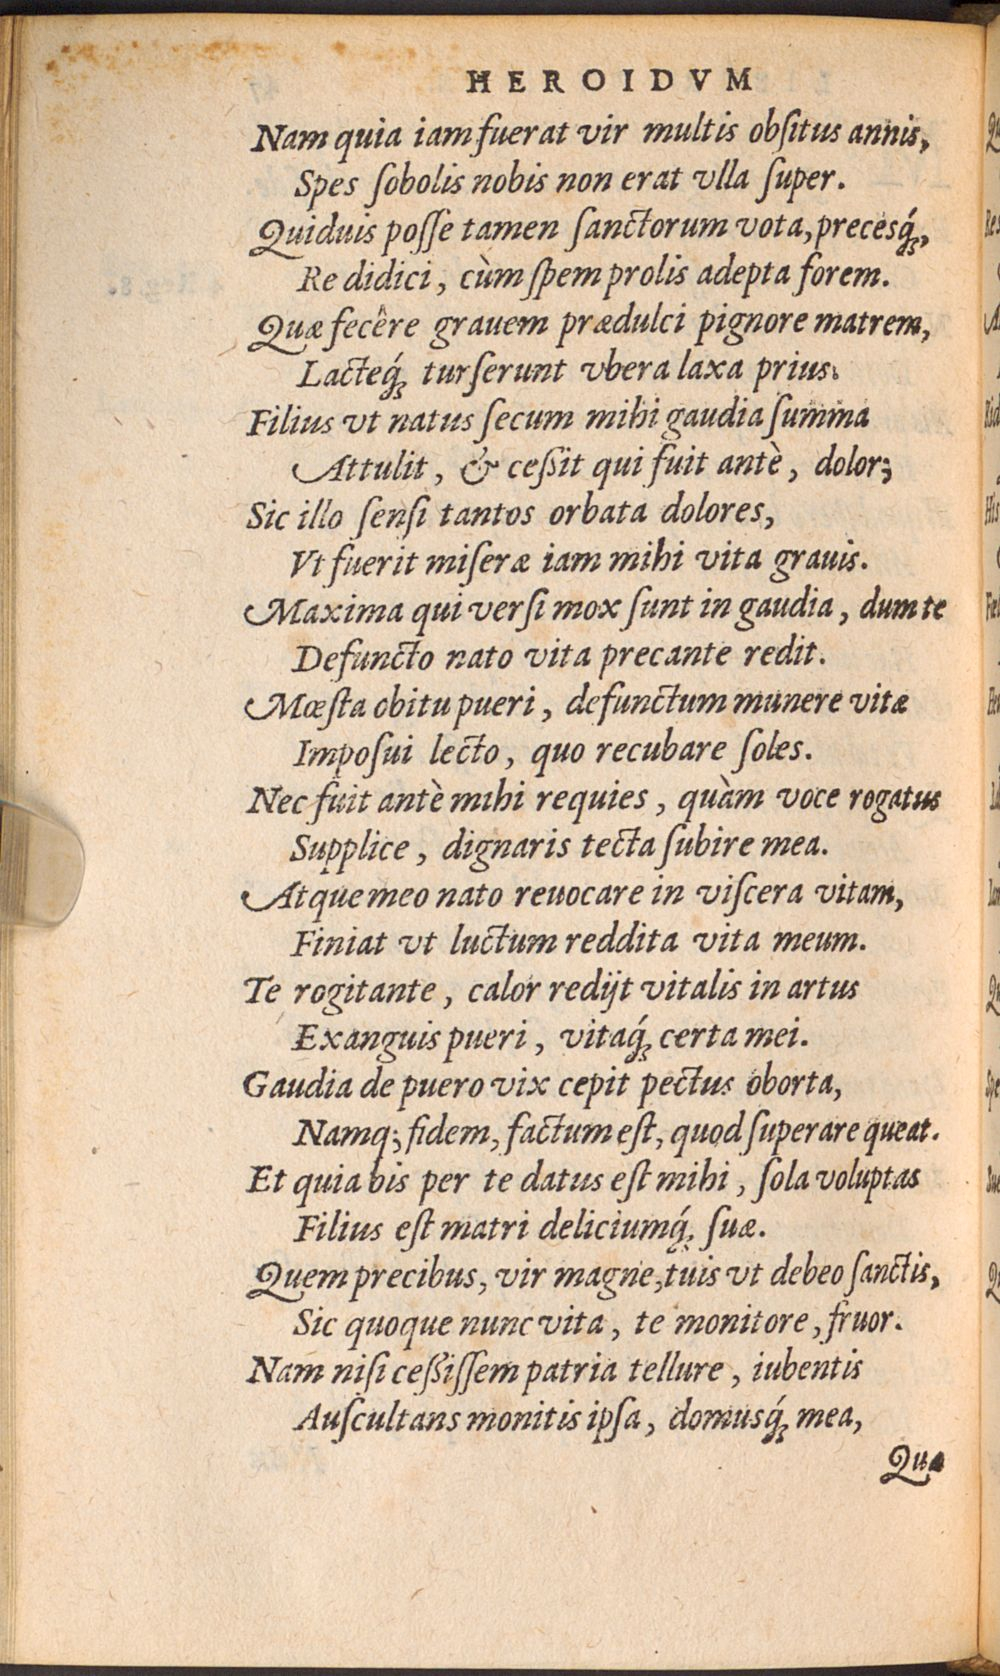 HEROIDVM
Nam quia iam fuerat vir multis obſitus annis,
Spes ſobolis nobis non erat vlla ſuper.
Quiduis poſſe tamen ſanctorum vota, precesq́;,
Re didici, cùm ſpem prolis adepta forem.
Quæ fecêre grauem prædulci pignore matrem,
Lacteq́; turſerunt vbera laxa prius.
Filius vt natus ſecum mihi gaudia ſumma
Attulit, & ceßit qui fuit antè, dolor;
Sic illo ſenſi tantos orbata dolores,
Vt fuerit miſeræ iam mihi vita grauis.
Maxima qui verſi mox ſunt in gaudia, dum te
Defuncto nato vita precante redit.
Mœſta obitu pueri, defunctum munere vitæ
Impoſui lecto, quo recubare ſoles.
Nec fuit antè mihi requies, quàm voce rogatus
Supplice, dignaris tecta ſubire mea.
Atque meo nato reuocare in viſcera vitam,
Finiat vt luctum reddita vita meum.
Te rogitante, calor redijt vitalis in artus
Exanguis pueri, vitaq́; certa mei.
Gaudia de puero vix cepit pectus oborta,
Namq; fidem, factum eſt, quod ſuperare queat.
Et quia bis per te datus eſt mihi, ſola voluptas
Filius eſt matri deliciumq́; ſuæ.
Quem precibus, vir magne, tuis vt debeo ſanctis,
Sic quoque nunc vita, te monitore, fruor.
Nam niſi ceßiſſem patria tellure, iubentis
Auſcultans monitis ipſa, domusq́; mea,
Qua